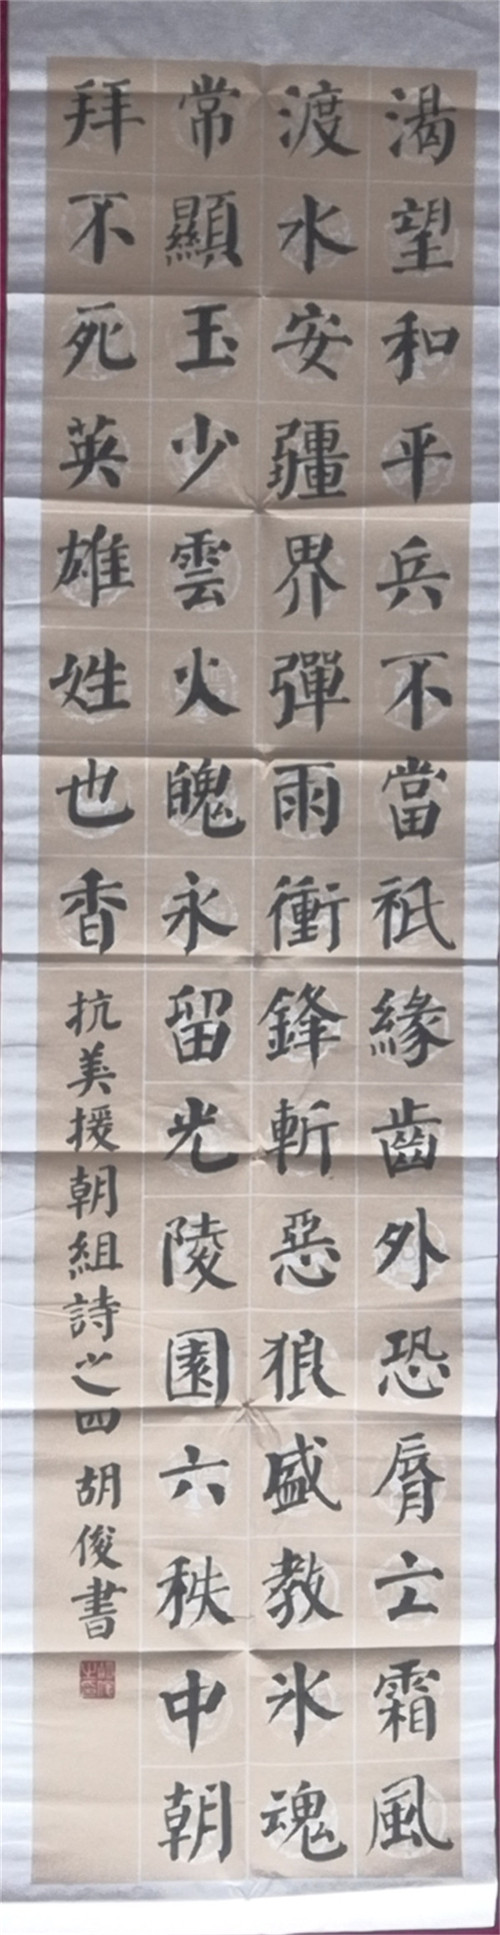 渴望和平兵不當祇緣齒外恐脣亡霜風
渡水安疆界彈雨衝鋒斬惡狼盛教氷魂
常顯玉少雲火魄永留光陵園六秩中朝
拜不死英雄姓也香
抗美援朝組詩之四 胡俊書